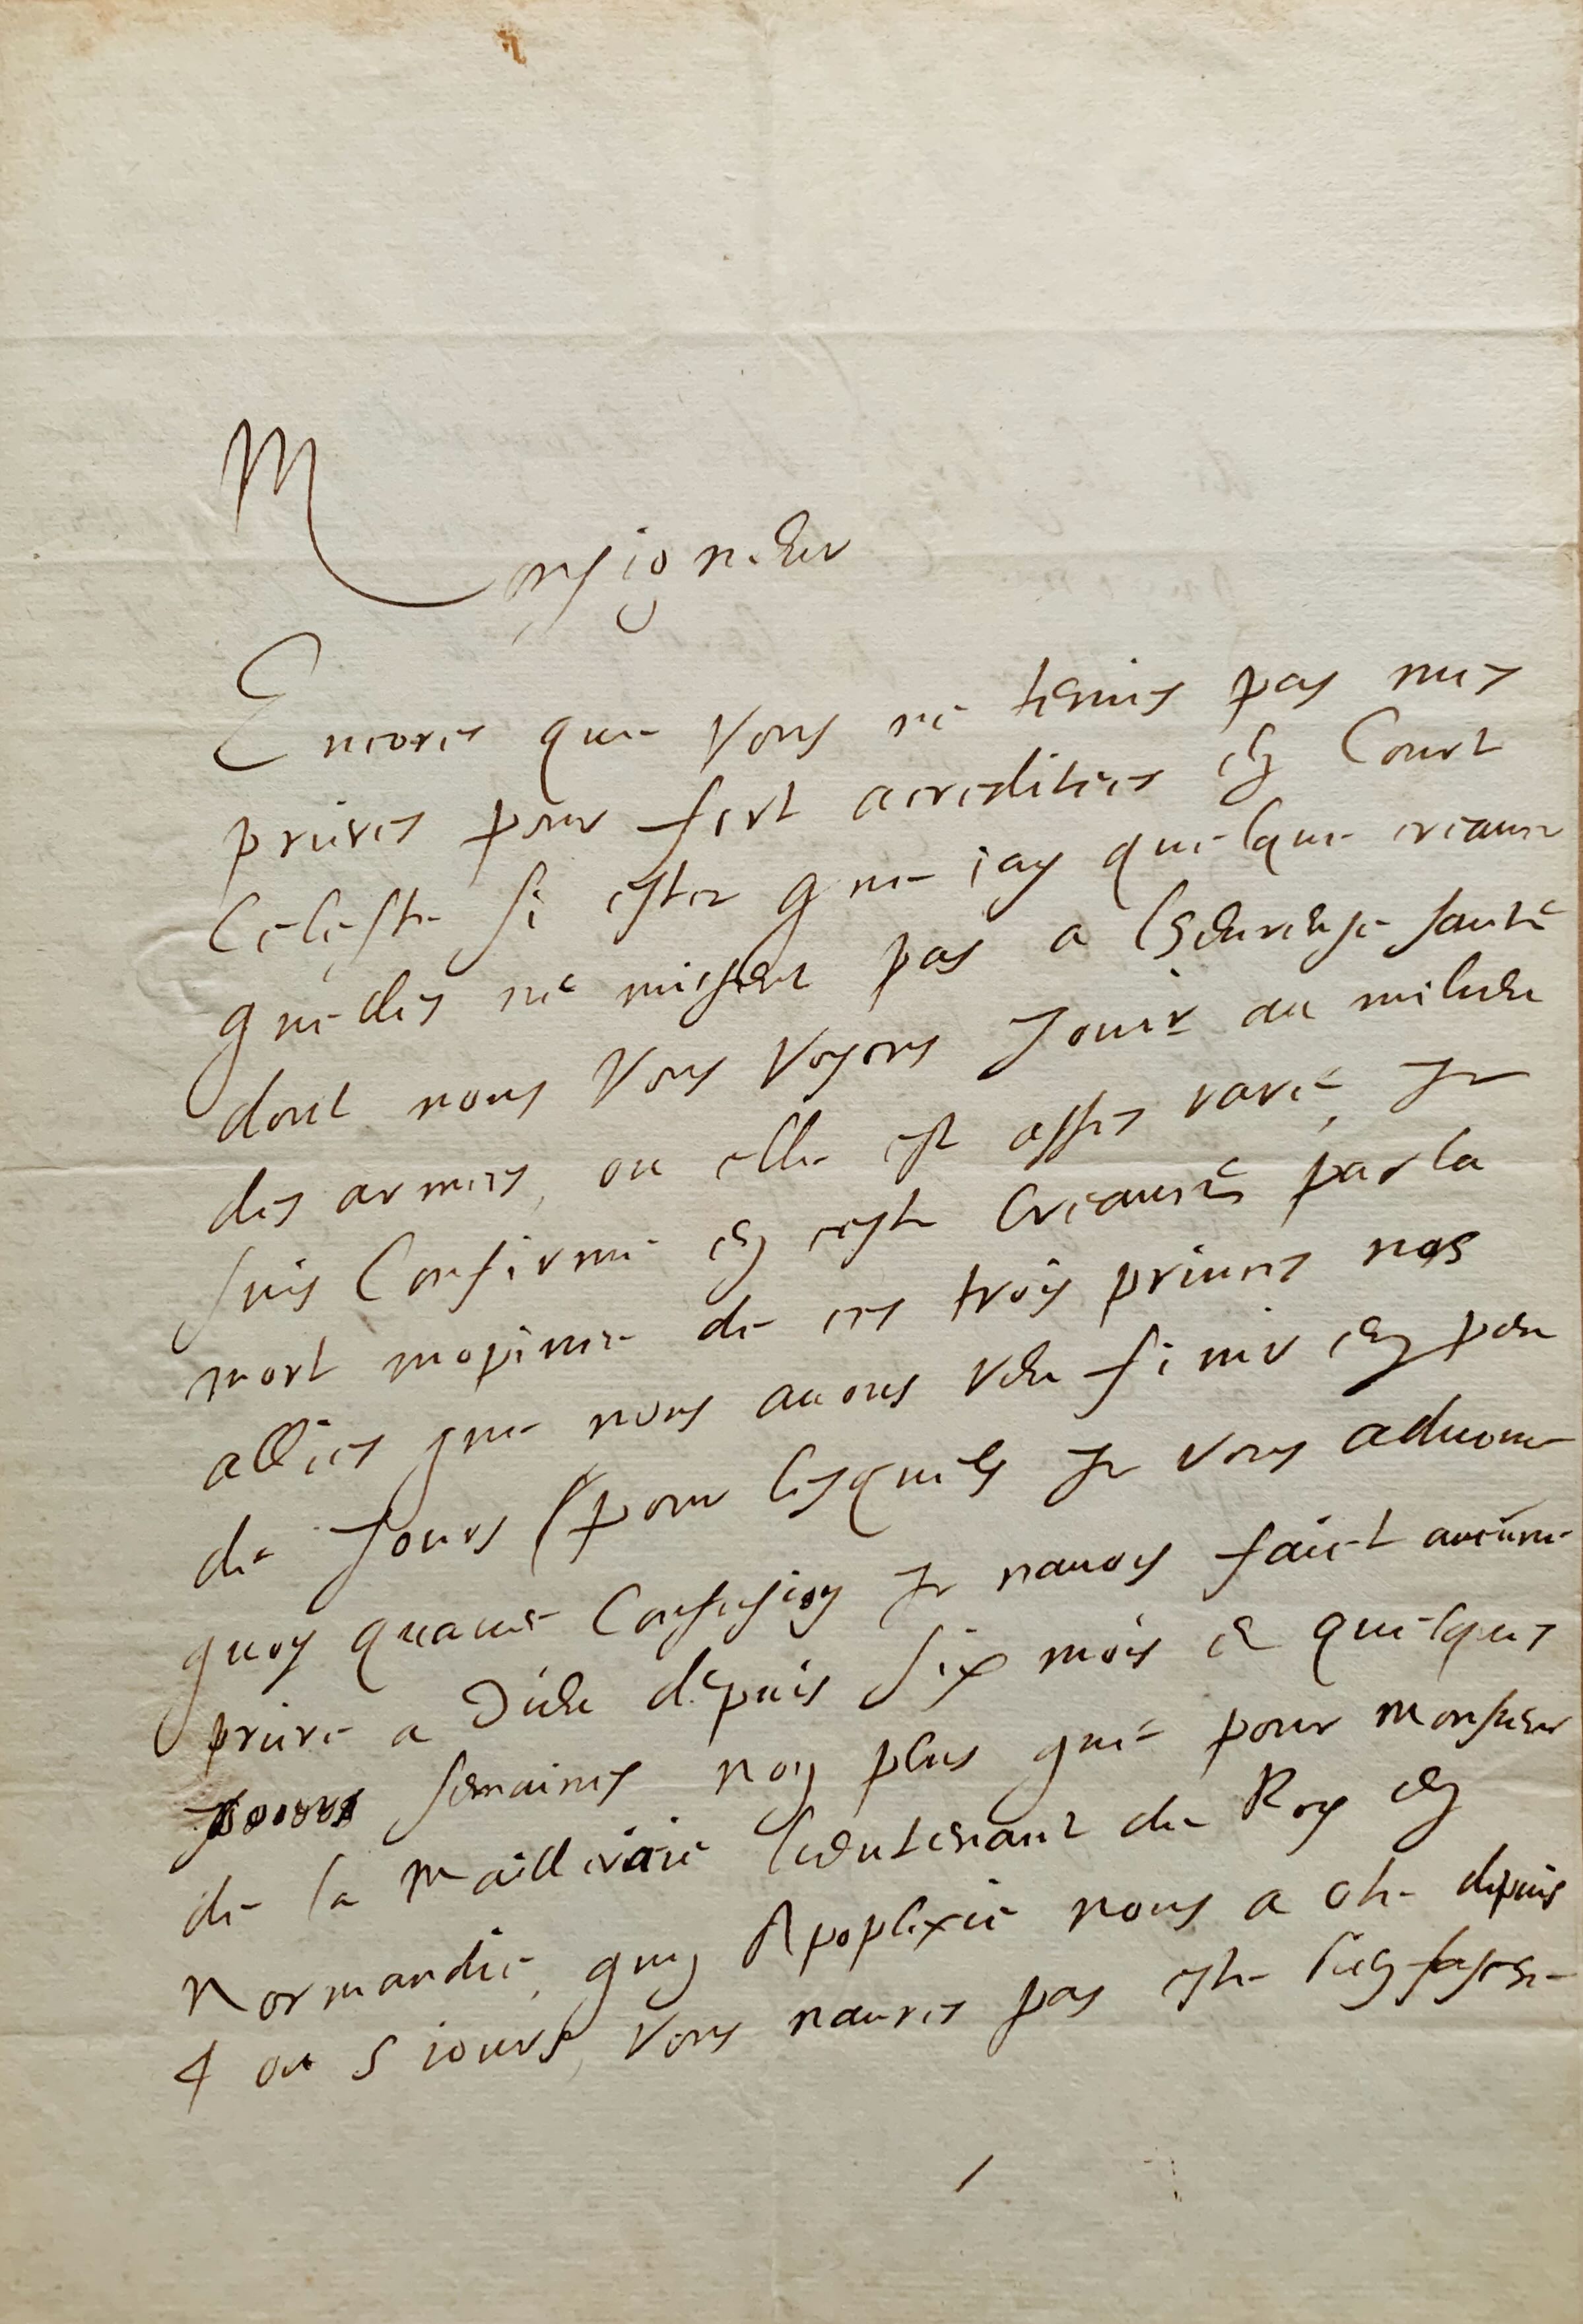 Monsigneur
Encores que vous ne teniés pas mes
prieres pour fort acreditées en Court
Celeste si estce que iay quelque creance
quelles ne nuisent pas a lheureuse santé
dont nous vous voyons Jouir au milieu
des armées, ou elle est assés rare, Je
suis Confirmé en ceste Creance par la
mort inopinée de ces trois princes nos
alliés que nous auons veu finir en peu
de Jours (pour lesquels Je vous aduoue
quoy quauec Confusion Je nauois faict aucune
priere a Dieu depuis six mois et quelques
semaines non plus que pour monsieur
de la Mailleraie lieutenant du Roy en
Normandie, quun Apoplexie nous a oté depuis
4 ou 5 iours, vous naurés pas esté